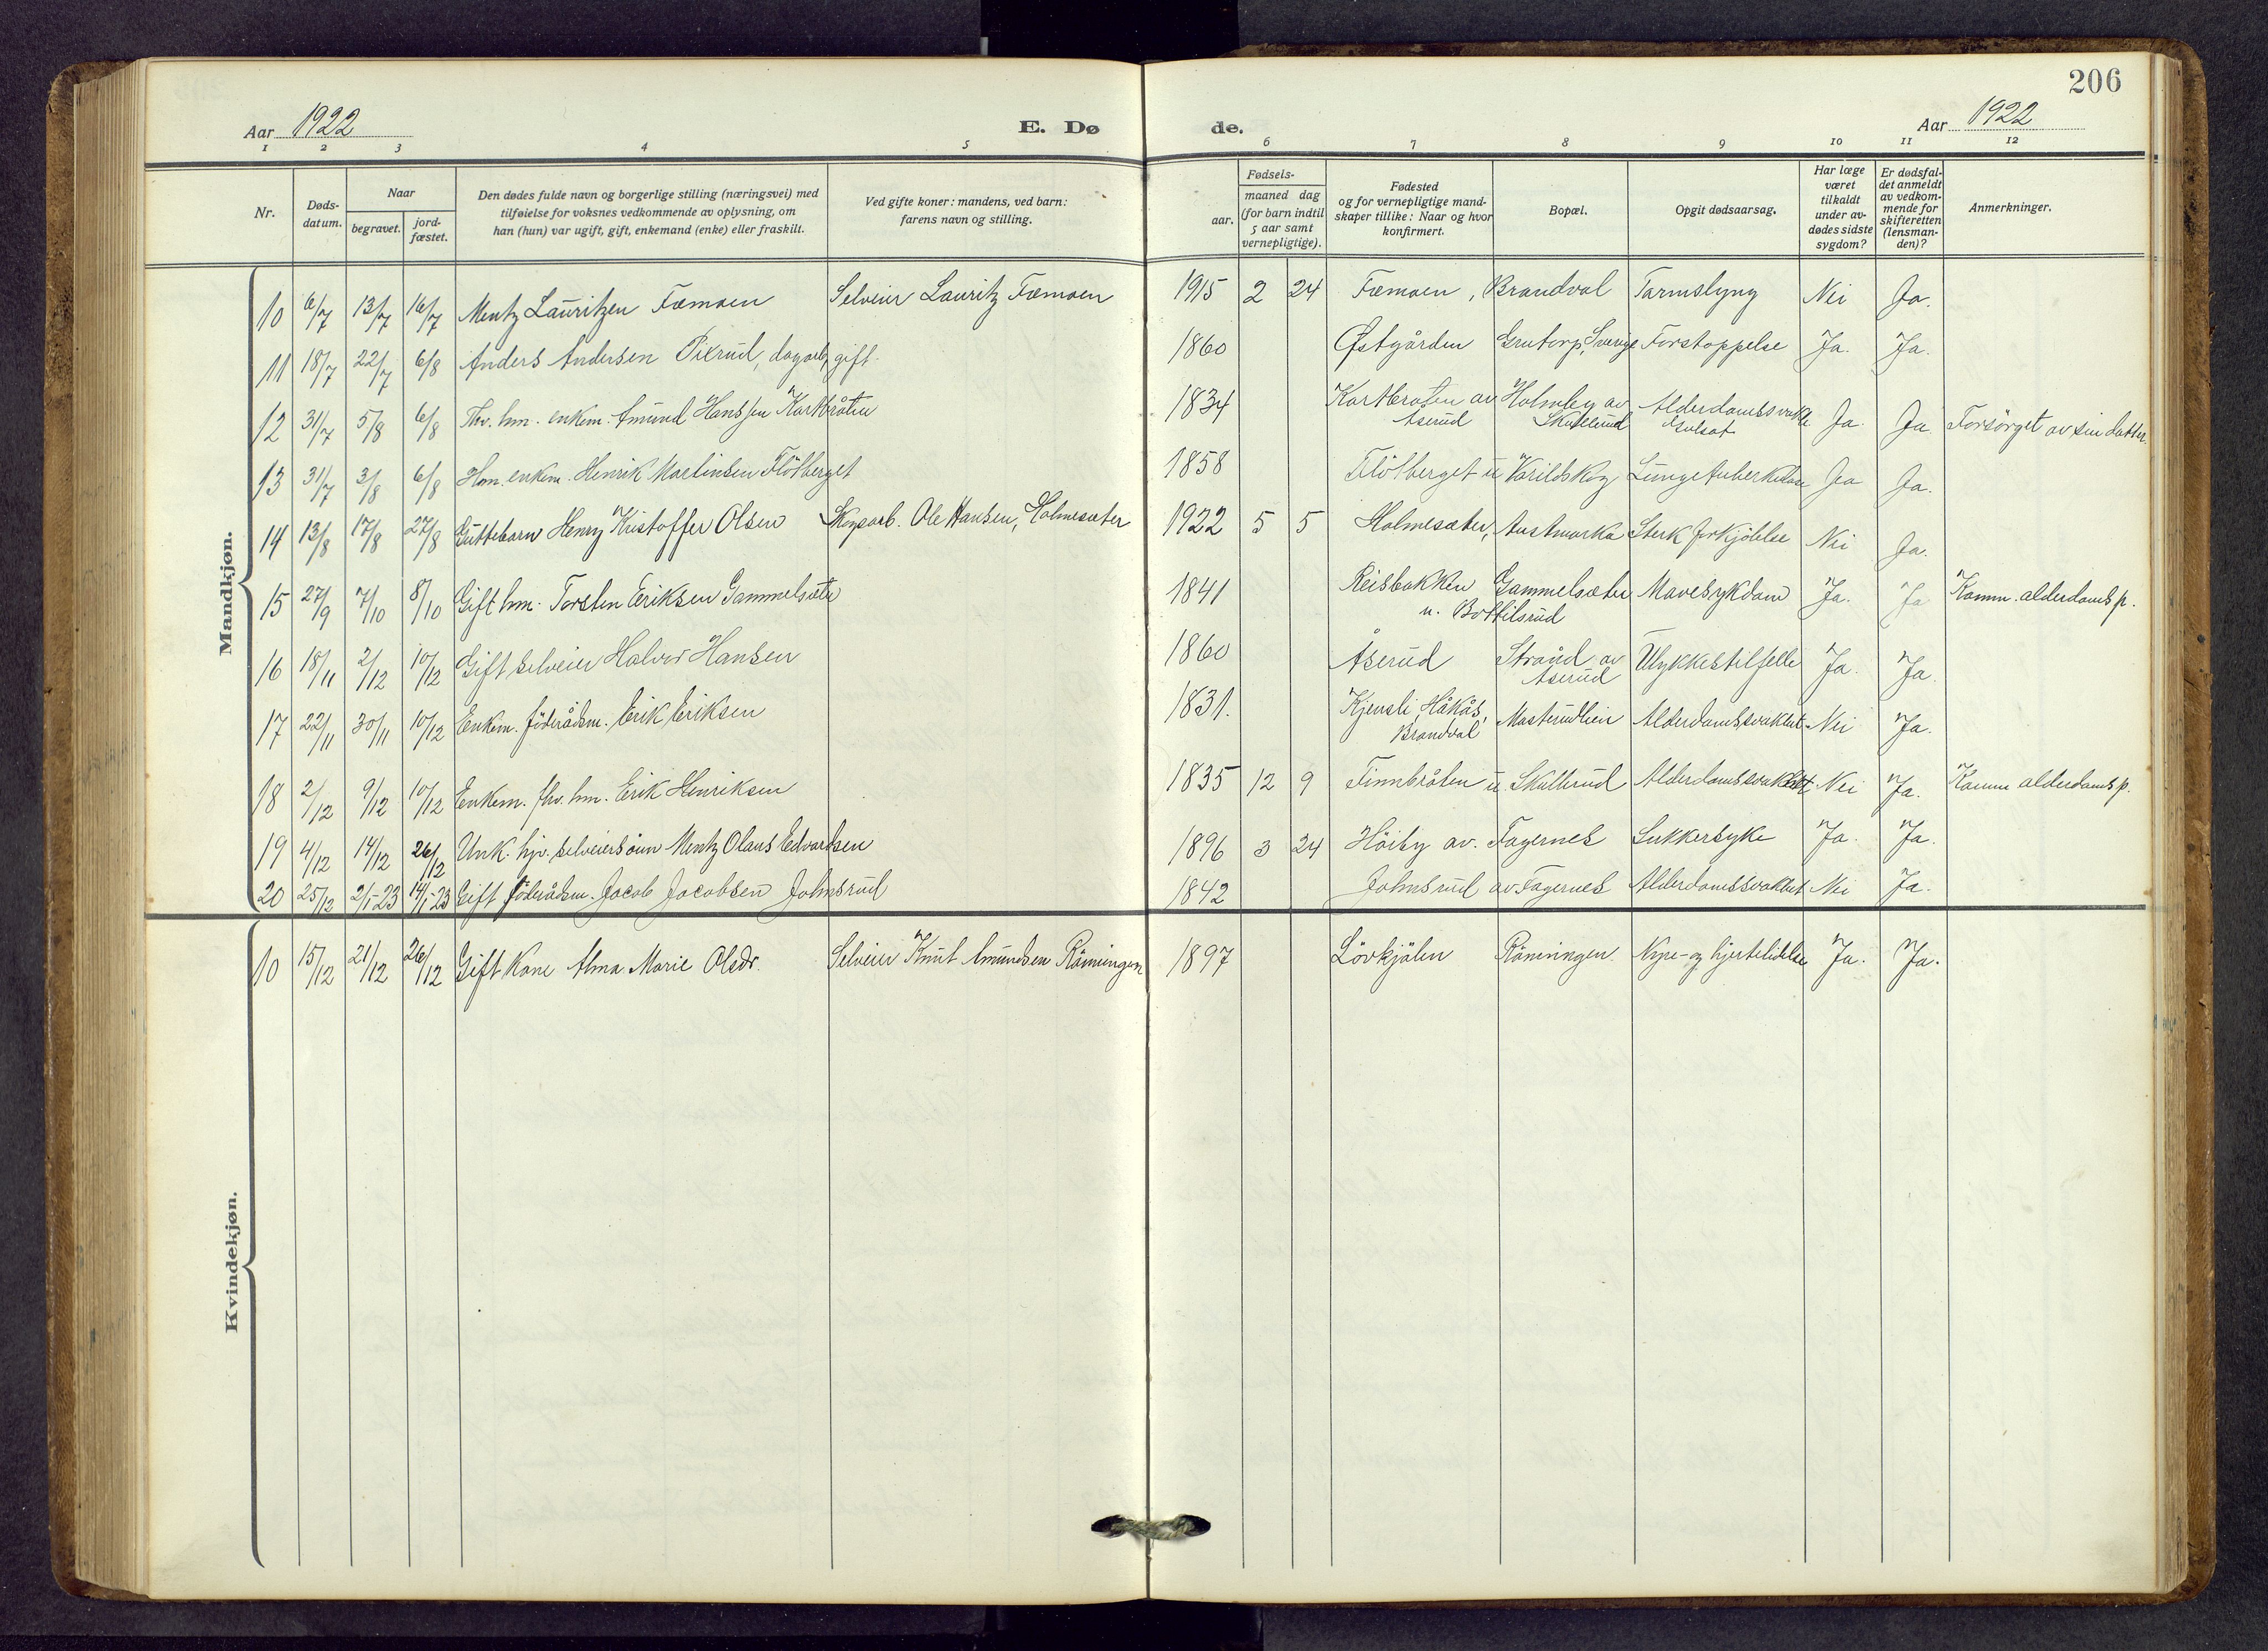 206
Aar 1922 E. Dø de. Aar 1922
1 2 3 4 5 6 7 8 9 10 11 12
Nr.
Døds-
datum.
Naar
begravet.
jord-
fæstet.
Den dødes fulde navn og borgerlige stilling (næringsvei) med
tilføielse for voksnes vedkommende av oplysning, om
han (hun) var ugift, gift, enkemand (enke) eller fraskilt.
Ved gifte koner: mandens, ved barn:
farens navn og stilling.
Fødsels-
aar.
maaned dag
(for barn indtil
5 aar samt
vernepligtige).
Fødested
og for vernepligtige mand-
skaper tillike: Naar og hvor
konfirmert.
Bopæl.
Opgit dødsaarsag.
Har læge
været
tilkaldt
under av-
dødes sidste
sygdom?
Er dødsfal-
det anmeldt
av vedkom-
mende for
skifteretten
(lensman-
den)?
Anmerkninger.
Mandkjøn.
10 6/7 13/7 16/7 Mentz Lauritzen Fæmoen Selveier Lauritz Fæmoen 1915 2 24 Fæmoen, Brandval Tarmslyng Nei Ja.
11 18/7 22/7 6/8 Anders Andersen dagarb, gift. 1860 Østgården Sverige Forstoppelse Ja. Ja.
12 31/7 5/8 6/8 Fhv. hm. enkem. Amund Hanssen Kartbråten 1834 Kartbråten av Holmby av Alderdomssvakh. Ja. Ja Forsörget av sin datter.
Åserud Skullerud Gulsot
13 31/7 3/8 6/8 Hm. enkem. Henrik Martinsen Flötberget 1858 Flötberget u Varildskog Lungetuberkulose Ja Ja.
14 13/8 17/8 27/8 Guttebarn Henry Kristoffer Olsen Skogarb. Ole Hansen, Holmesæter 1922 5 5 Holmesæter, Austmarka Sterk forkjölelse Nei Ja.
15 27/9 7/10 8/10 Gift hm. Torsten Eriksen Gammelsæter 1841 Reisbakken Gammelsæter Mavesykdom Ja. Ja Komm. alderdoms p.
u. Bottilsrud
16 18/11 2/12 10/12 Gift selveier Halvor Hansen 1860 Åserud Strand av Ulykkestilfelle Ja. Ja.
Åserud
17 22/11 30/11 10/12 Enkem. föderådsm. Erik Eriksen 1831. Kjensli, Håkås, Masterudlien Alderdomssvakhet Nei Ja.
Brandval
18 2/12 9/12 10/12 Enkem. fhv. hm. Erik Henriksen 1835 12 9 Finnbråten u Skullerud Alderdomssvakhet Nei Ja. Komm alderdoms p.
19 4/12 14/12 26/12 Unk. hjv. selveiersönn Mentz Olaus Edvardsen 1896 3 24 Höiby av. Fagernes Sukkersyke Ja. Ja.
20 25/12 2/1-23 14/1-23 Gift föderådsm. Jacob Jacobsen Johnsrud 1842 Johnsrud av Fagernes Alderdomssvakhet Nei Ja.
Kvindekjøn.
10 15/12 21/12 26/12 Gift kone Alma Marie Olsdr. Selveier Knut Amundsen Röiningen 1897 Lövkjölen Röiningen. Nyre- og hjertelidelse Ja. Ja.